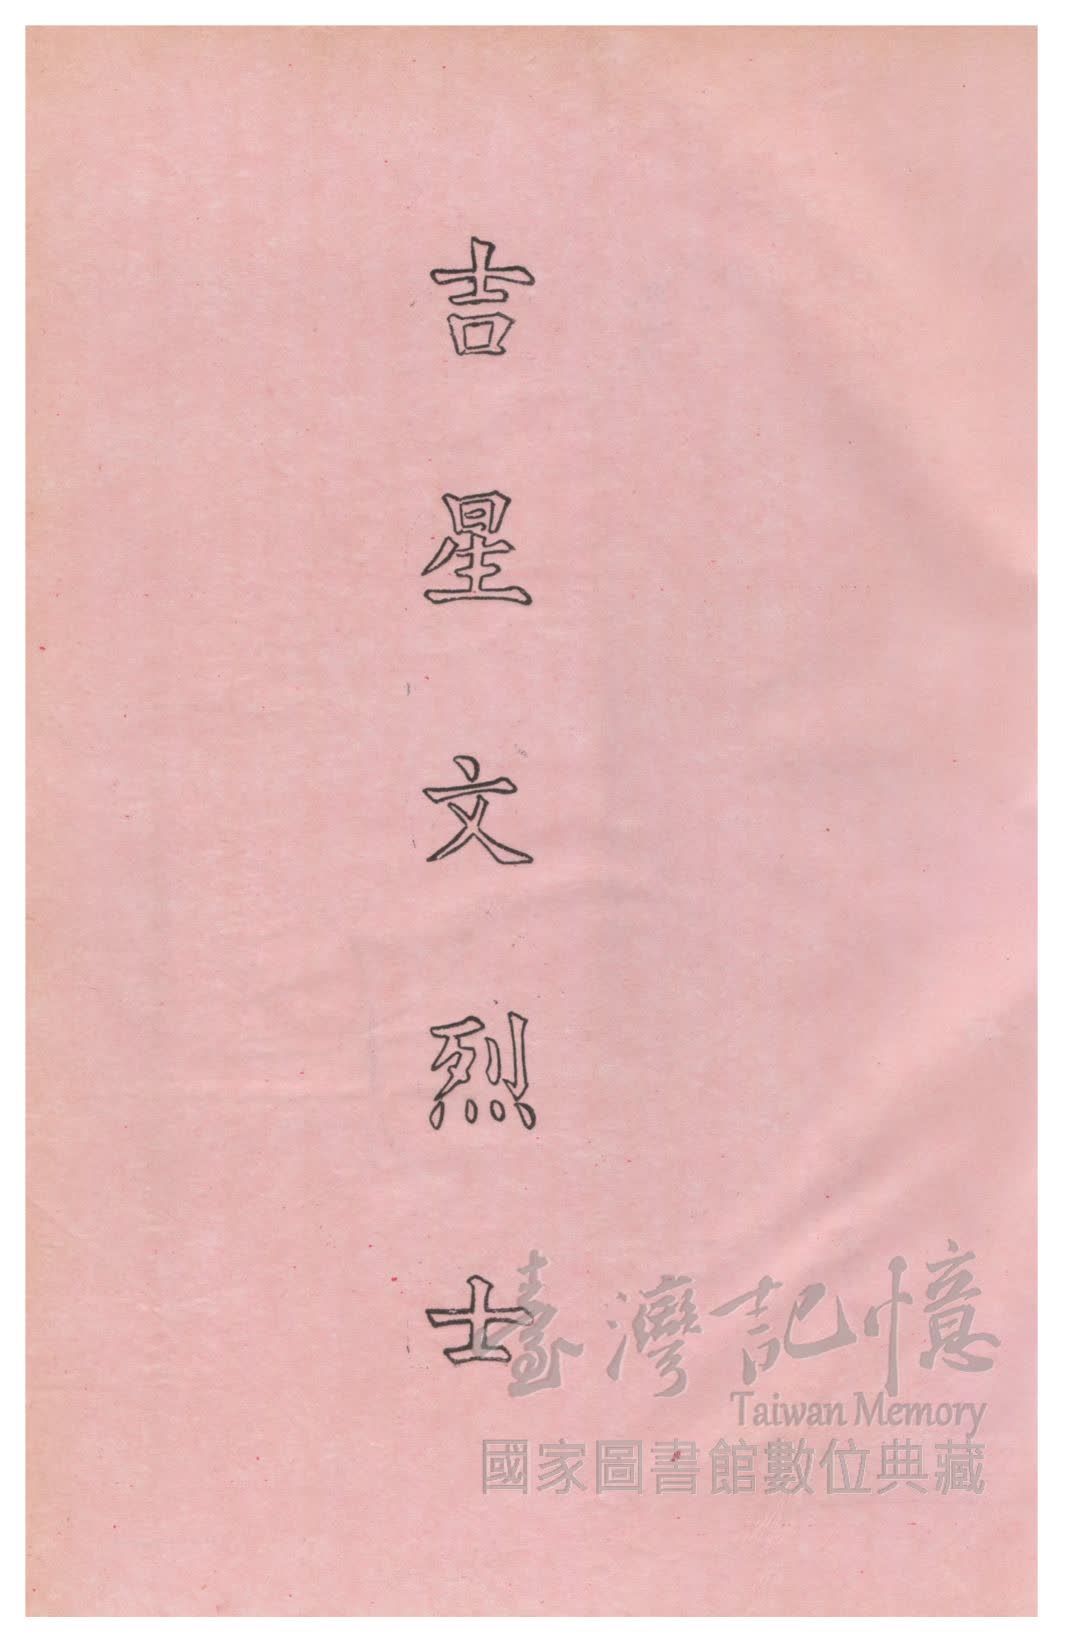 吉星文烈士
臺灣記憶
Taiwan Memory
國家圖書館數位典藏